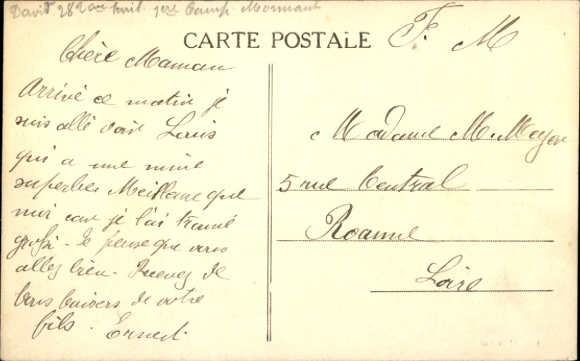 David 28e Camp Mormant
CARTE POSTALE
F. M
Chère Maman
Arrivé ce matin je
suis allé voir Louis
qui a une mine
superbe Meilleure que
moi car je l'ai trouvé
grossi - Je pense que vous
allez bien - Recevez de
bons baisers de votre
fils. Ernest.
Madame M. Meyer
5 rue Central
Roanne
Loire